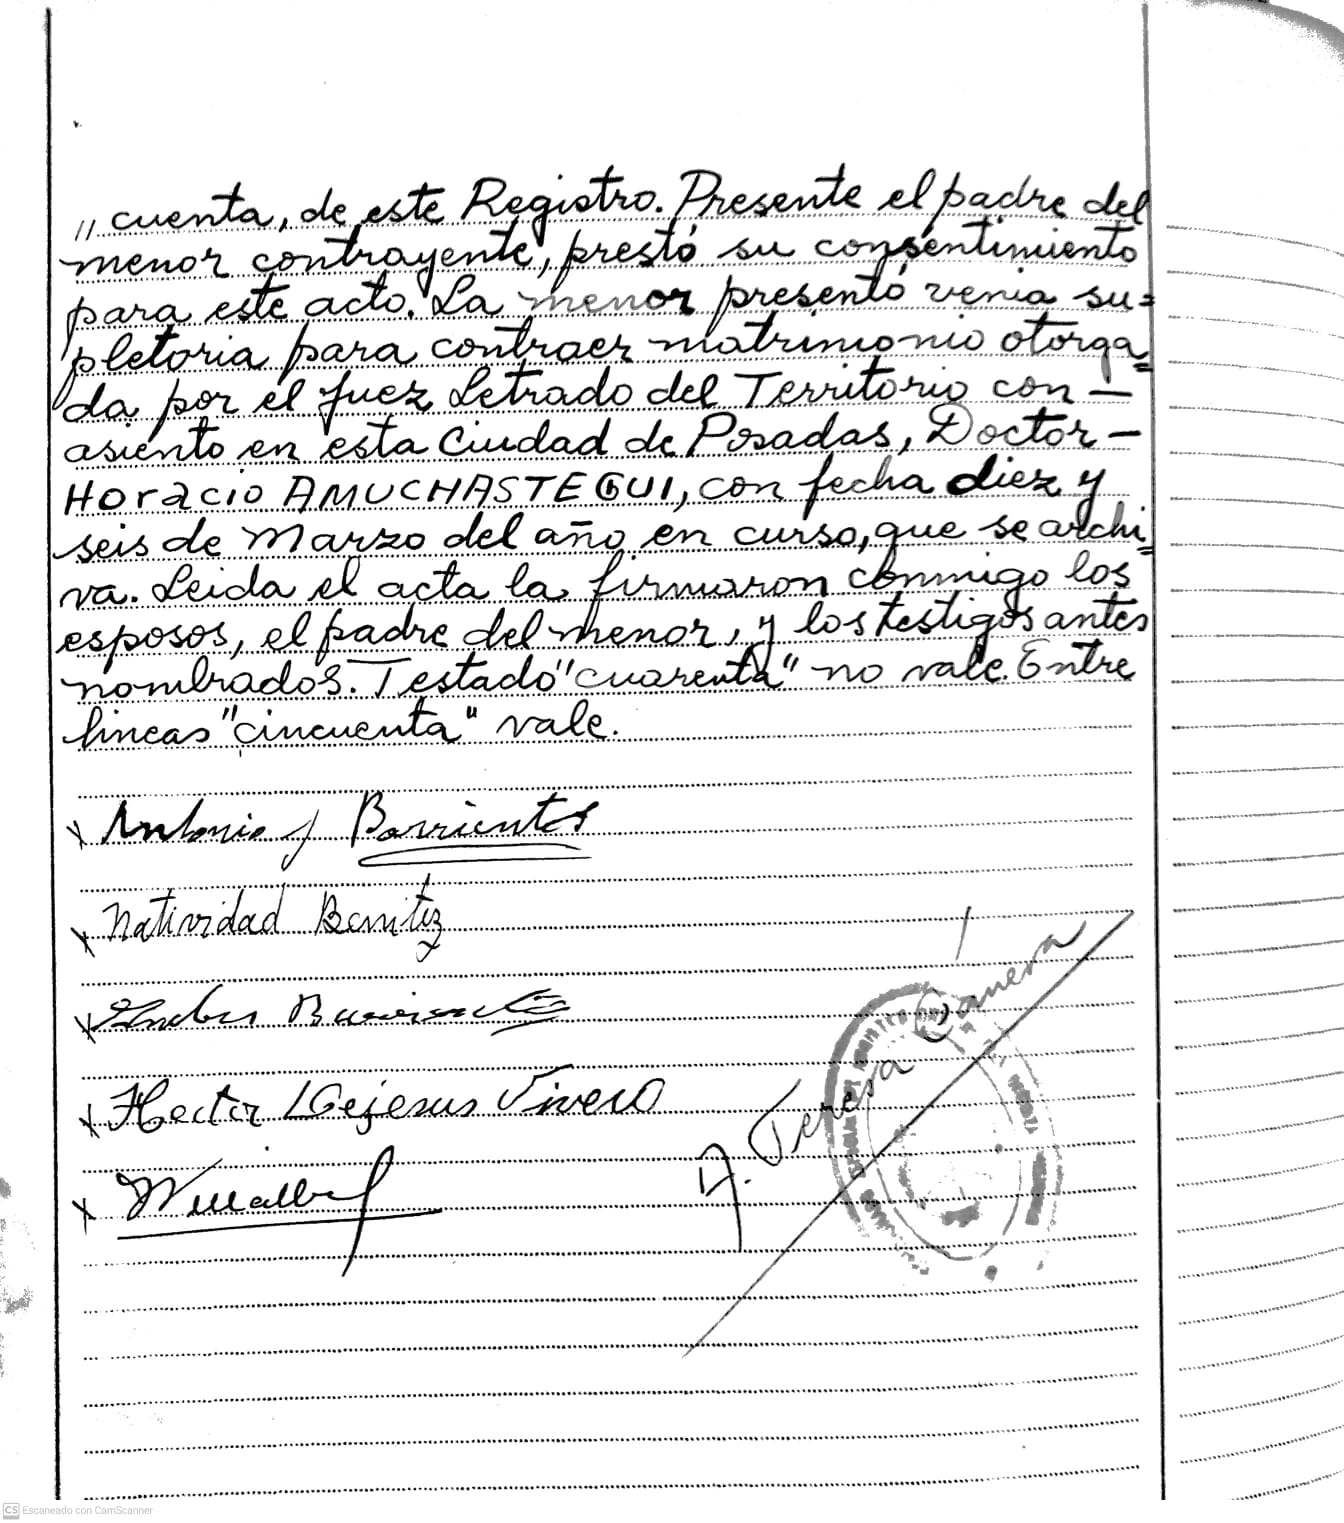 " cuenta, de este Registro. Presente el padre del
menor contrayente, prestó su consentimiento
para este acto. La menor presentó venia su=
pletoria para contraer matrimonio otorga=
da por el Juez Letrado del Territorio con —
asiento en esta Ciudad de Posadas, Doctor —
Horacio AMUCHASTEGUI, con fecha diez y
seis de Marzo del año en curso, que se archi=
va. Leida el acta la firmaron conmigo los
esposos, el padre del menor, y los testigos antes
nombrados. Testado "cuarenta" no vale. Entre
lineas "cincuenta" vale.
x Antonio J Barrientos
x Natividad Benitez
x Barrientos
x Hector Vivero
x
A. Teresa
CS Escaneado con CamScanner